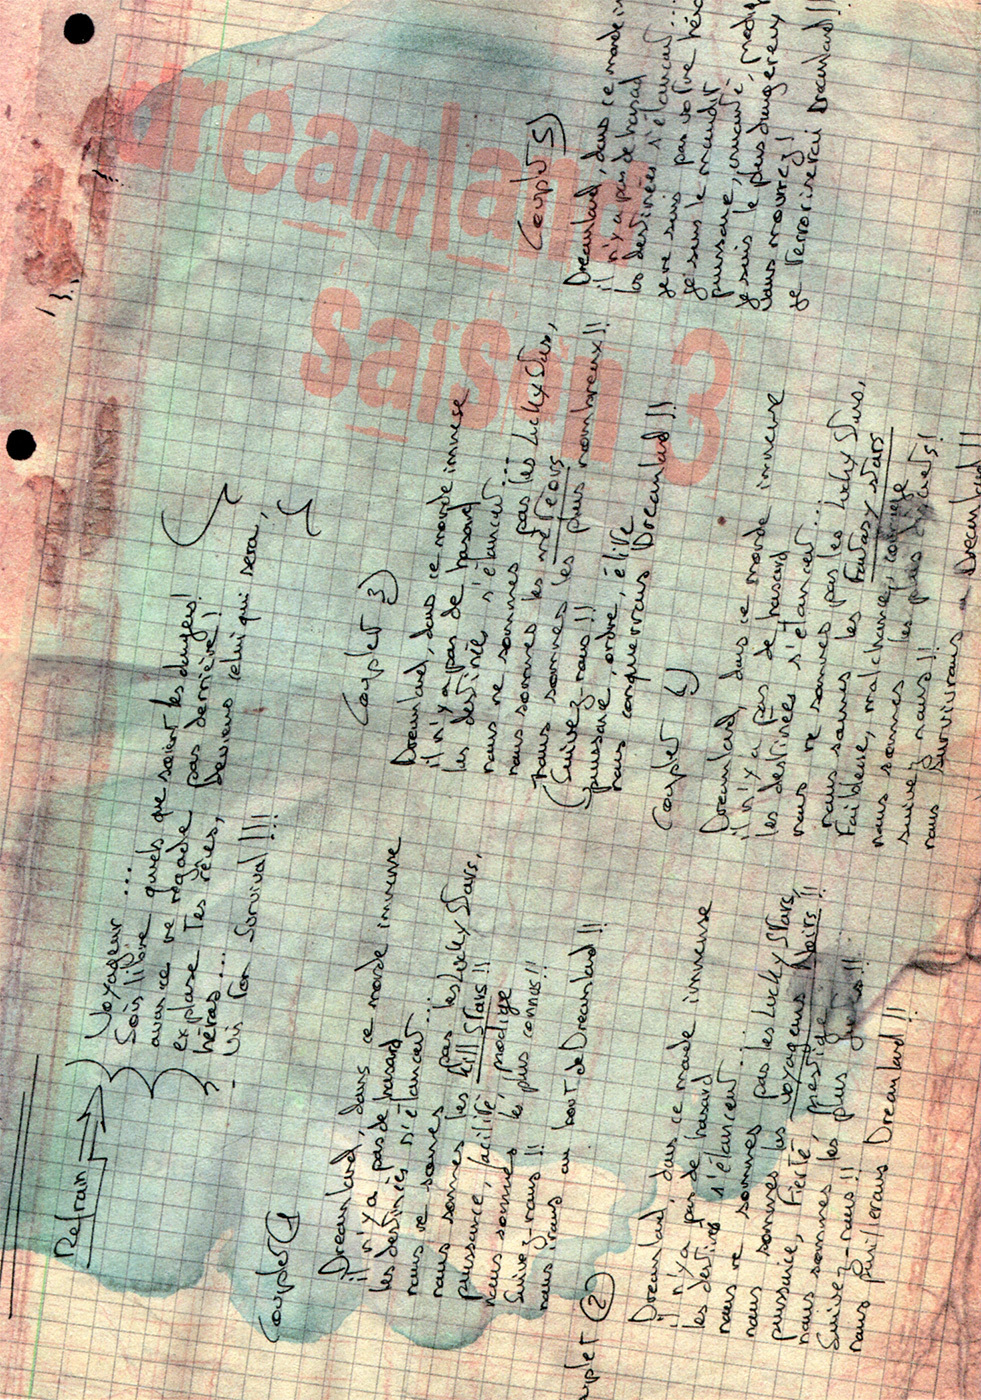 dreamland
saison 3
Refrain
Voyageur ...
Sois libre
avance quels que soient les dangers!
ne regarde pas derrière!
explore tes rêves, deviens celui qui sera,
héros ...
- Vis for Survival !!!
Couplet 1
Dreamland, dans ce monde immense
il n'y a pas de hasard
les destinées s'élancent ...
nous ne sommes pas les Lucky Stars,
nous sommes les Kill Stars!!
puissance, facilité, prodige
nous sommes les plus connus!!
Suivez-nous!!
nous irons au bout de Dreamland!!
Couplet 2
Dreamland, dans ce monde immense
il n'y a pas de hasard
les destinées s'élancent ...
nous ne sommes pas les Lucky Stars,
nous sommes les voyageurs Noirs!!
puissance, Fierté, prestige
nous sommes les plus
Suivez-nous!!
nous purifierons Dreamland!!
Couplet 3)
Dreamland, dans ce monde immense
il n'y a pas de hasard
les destinée s'élancent ...
nous ne sommes pas les Lucky Stars,
nous sommes les météors
nous sommes les plus nombreux!!
(Suivez-nous!!
puissance, ordre, élite
nous conquerrons Dreamland!!
Couplet 4)
Dreamland, dans ce monde immense
il n'y a pas de hasard
les destinées s'élancent ...
nous ne sommes pas les Lucky Stars,
nous sommes les Fantasy stars
Faiblesse, malchance, courage
nous sommes les plus
suivez nous!!
nous survivrons à Dreamland!!
Couplet 5)
Dreamland, dans ce monde
il n'y a pas de hasard
les destinées s'élancent ...
je ne suis pas votre
je suis le maudit
puissance, cruauté,
je suis le plus dangereux
Vous mourrez!
je terroriserai Dreamland!!